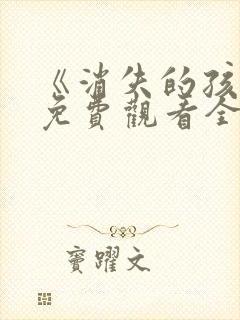 《消失的孩
免費觀看全
竇躍文